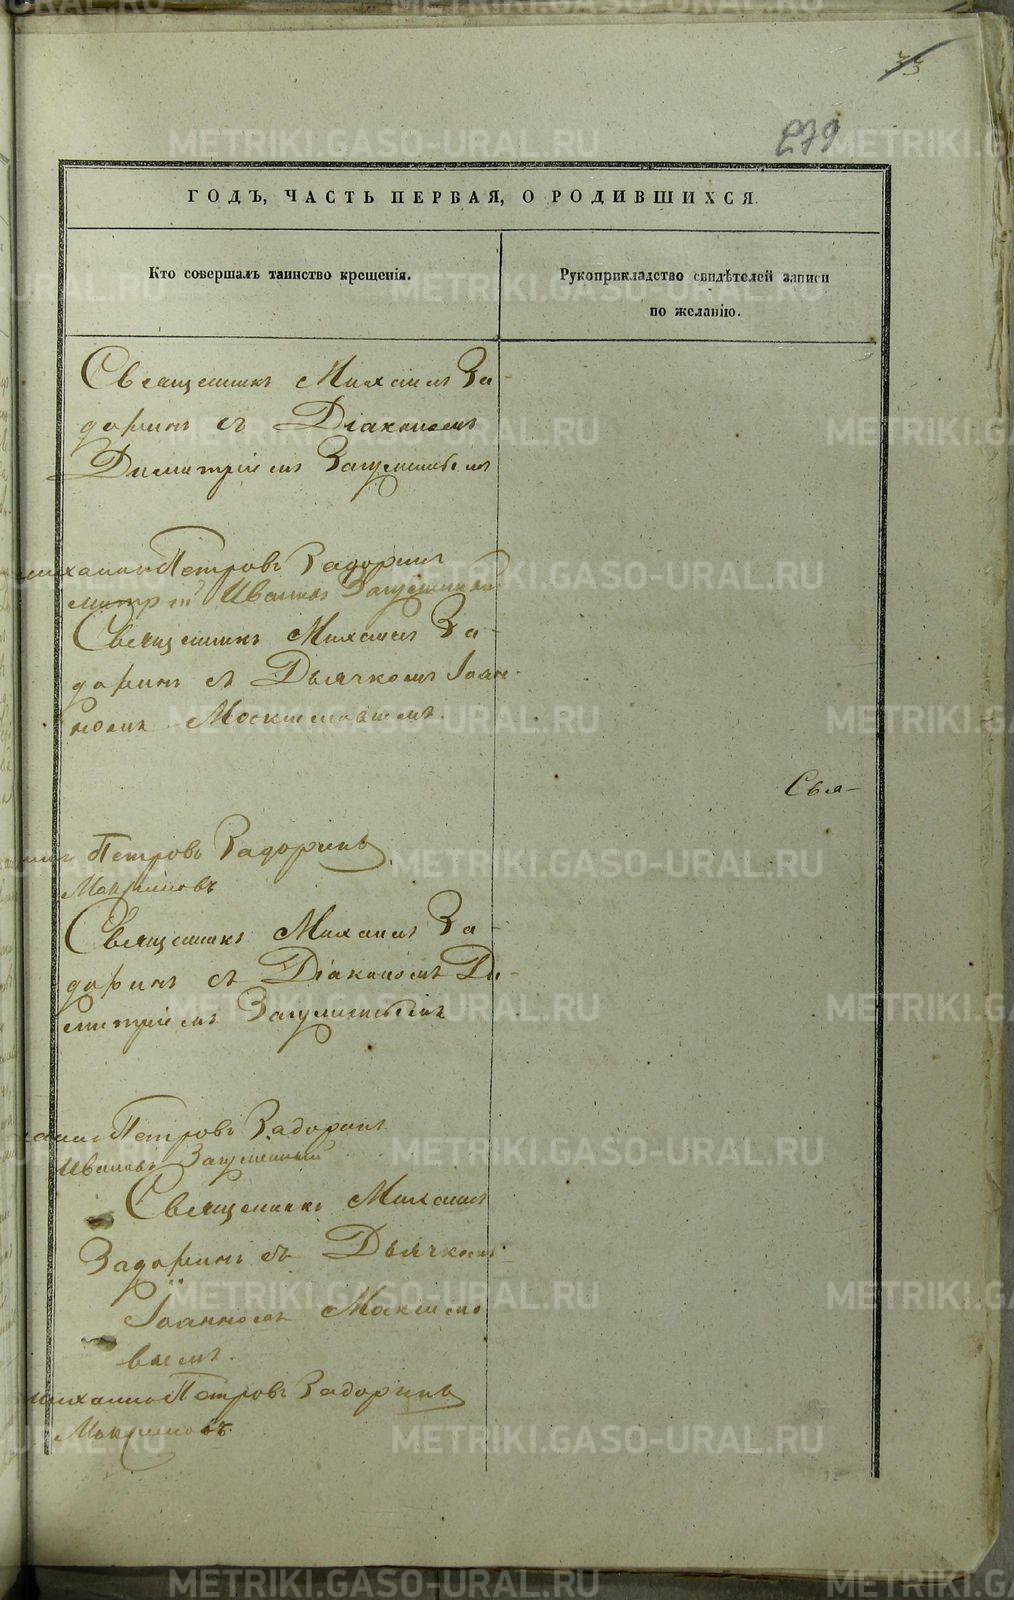 33
279
ГОДЪ, ЧАСТЬ ПЕРВАЯ, О РОДИВШИХСЯ.
Кто совершалъ таинство крещенія.
Рукоприкладство свидѣтелей записи
по желанію.
Священникъ Михаилъ За-
доринъ съ Діакономъ
Димитріемъ
Петровъ Задоринъ
Ивановъ
Священникъ Михаилъ За-
доринъ съ Дьячкомъ Іоан-
номъ
Свя-
Петровъ Задоринъ
Священникъ Михаилъ За-
доринъ съ Діакономъ Ди-
митріемъ
Петровъ Задоринъ
Ивановъ
Священникъ Михаилъ
Задоринъ съ Дьячкомъ
Іоанномъ Максимо
вымъ.
Петровъ Задоринъ
METRIKI.GASO-URAL.RU